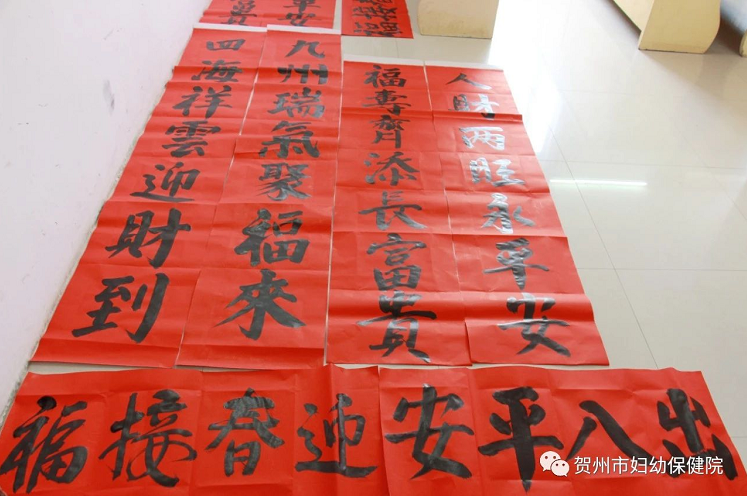 人財兩旺永平安
福壽齊添長富貴
九州瑞氣聚福來
四海祥雲迎財到
出入平安迎春接福
贺州市妇幼保健院